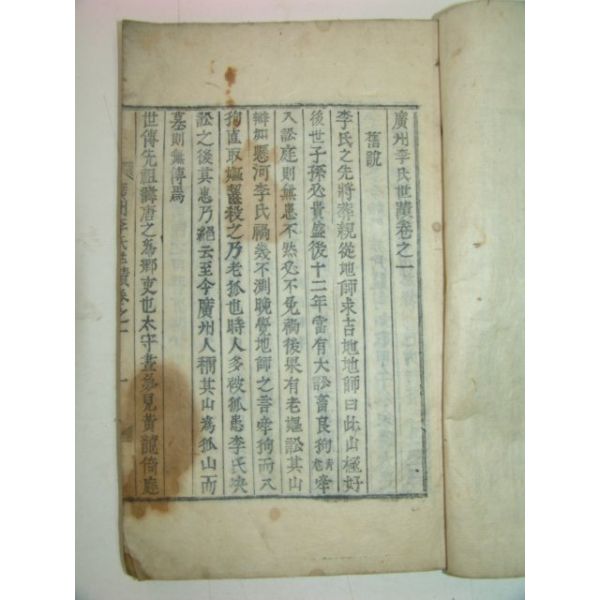 廣州李氏世蹟卷之一
舊說
李氏之先將葬親從地師求吉地地師曰此山極好
後世子孫必貴盛後十二年當有大訟畜良狗青老牽
入訟庭則無患不然必不免禍後果有老嫗訟其山
辯如懸河李氏禍幾不測晩覺地師之言牽狗而入
狗直取嫗齧殺之乃老狐也時人多被狐患李氏決
訟之後其患乃絕云至今廣州人稱其山爲狐山而
墓則無傳焉
世傳先祖諱唐之爲鄕吏也太守晝夢見黃龍倚庭
廣州李氏世蹟卷之一 一